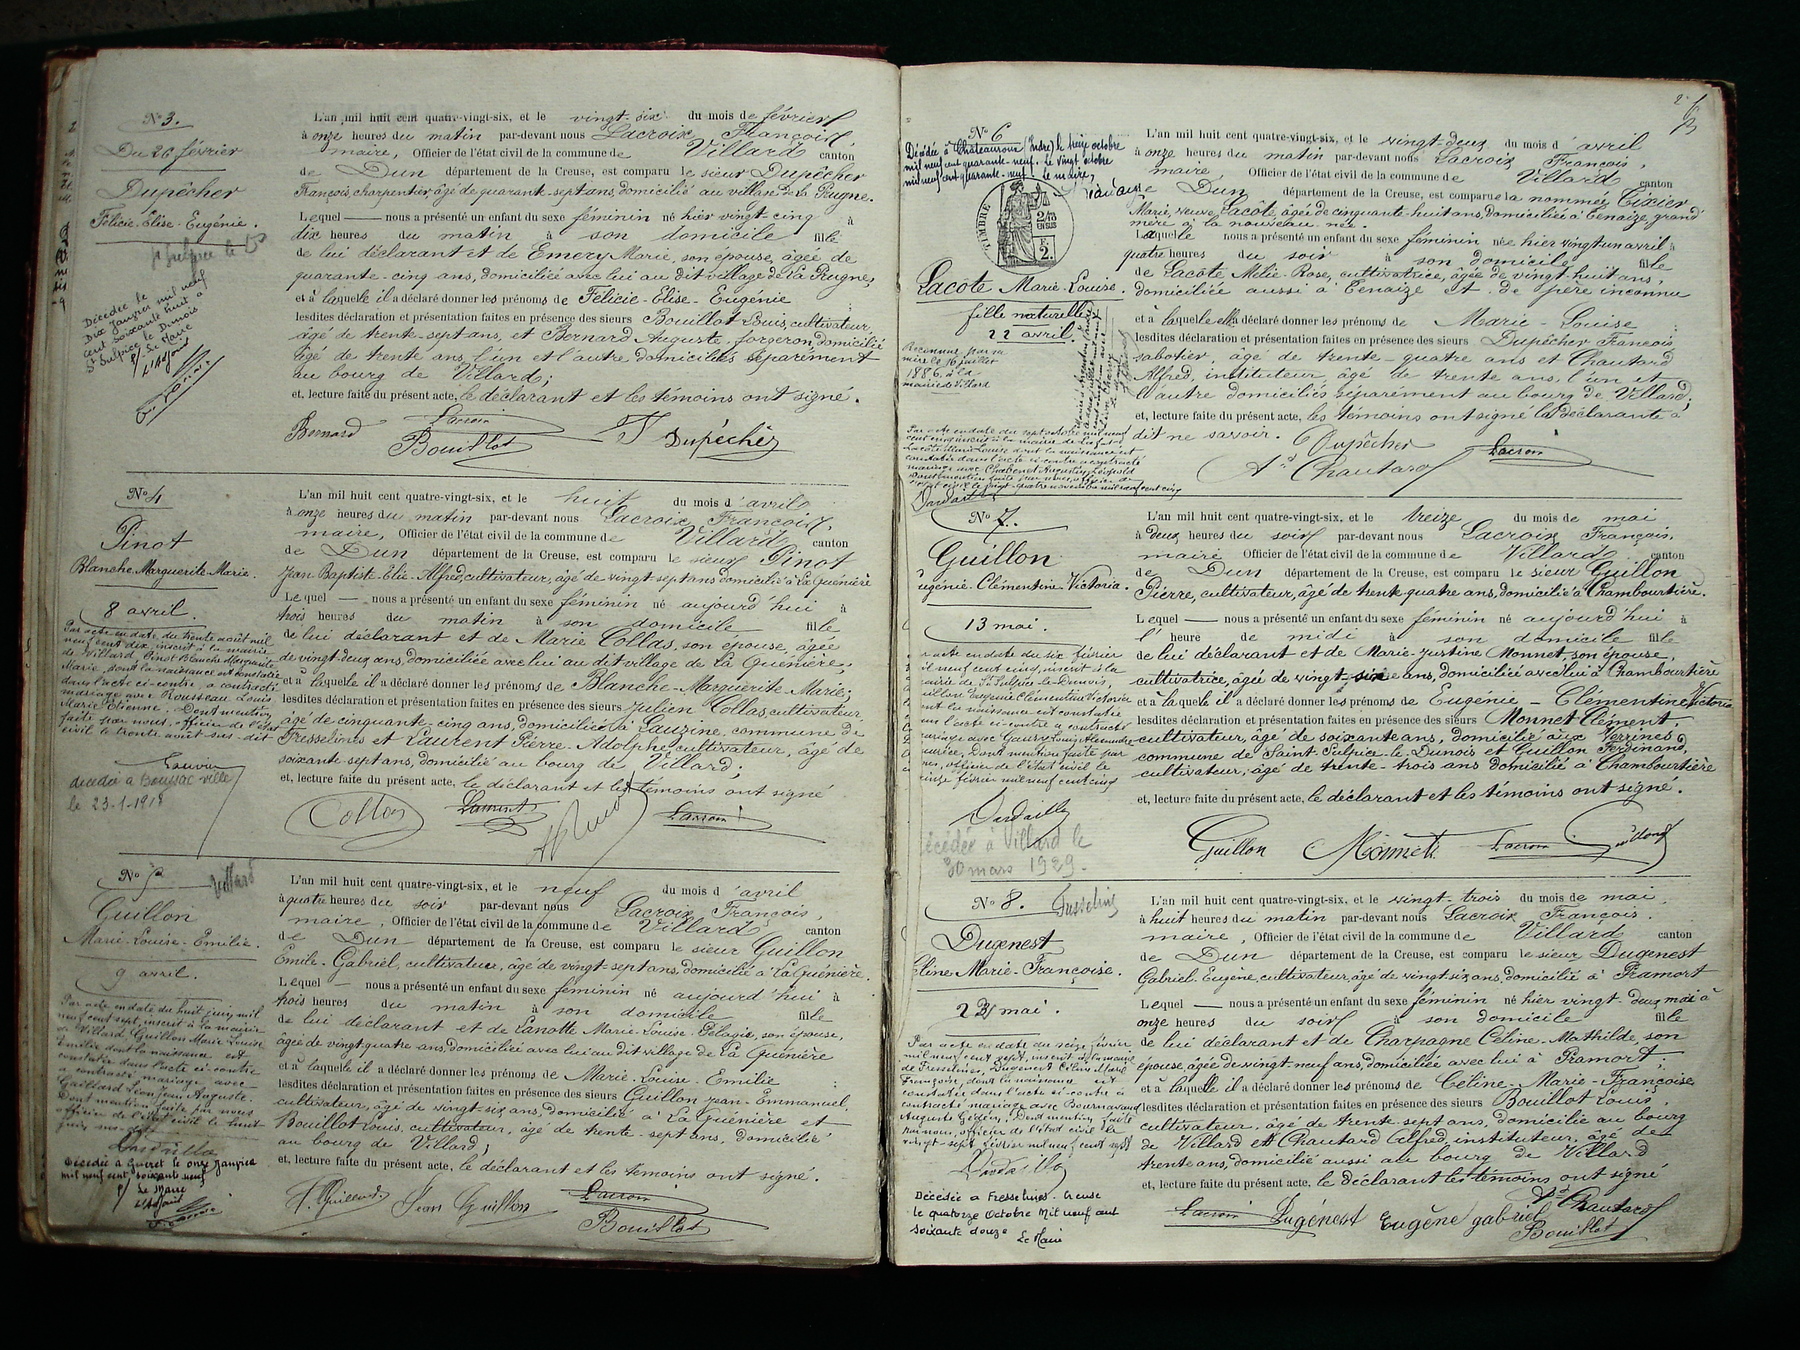 N° 3.
Du 26 février
Dupêcher
Félicie-Elise-Eugénie.
St Sulpice le D
Décédée le
dix janvier mil neuf
cent soixante huit à
St Sulpice le Dunois
P/ Le Maire
L'Adjoint
L'an mil huit cent quatre-vingt-six, et le vingt-six du mois de février
à onze heures du matin par-devant nous Lacroix François,
maire, Officier de l'état civil de la commune de Villard canton
de Dun département de la Creuse, est comparu le sieur Dupêcher
François, charpentier, âgé de quarante-sept ans, domicilié au village de la Prugne.
Lequel — nous a présenté un enfant du sexe féminin né hier vingt-cinq à
dix heures du matin à son domicile fille
de lui déclarant et de Emery Marie, son épouse, âgée de
quarante-cinq ans, domiciliée avec lui au dit village de La Prugne,
et à laquelle il a déclaré donner les prénoms de Félicie-Elise-Eugénie
lesdites déclaration et présentation faites en présence des sieurs Bouillot Louis, cultivateur,
âgé de trente-sept ans, et Bernard Auguste, forgeron, domicilié
âgé de trente ans, l'un et l'autre domiciliés séparément
au bourg de Villard;
et, lecture faite du présent acte, le déclarant et les témoins ont signé.
Bernard Lacroix Bouillot Dupêcher
N° 4
Pinot
Blanche-Marguerite-Marie.
8 avril
Par acte en date du trente août mil
neuf cent dix, inscrit à la mairie
de Villard, Pinot Blanche Marguerite
Marie, dont la naissance est constatée
dans l'acte ci-contre, a contracté
mariage avec Rousseau Louis
Marie Etienne. Dont mention
faite par nous, officier de l'état
civil le trente août sus-dit
décédée à Boussac ville
le 23-1-1918
L'an mil huit cent quatre-vingt-six, et le huit du mois d'avril
à onze heures du matin par-devant nous Lacroix François,
maire, Officier de l'état civil de la commune de Villard canton
de Dun département de la Creuse, est comparu le sieur Pinot
Jean Baptiste-Elie-Alfred, cultivateur, âgé de vingt-sept ans domicilié à la Guénière
Lequel — nous a présenté un enfant du sexe féminin né aujourd'hui à
trois heures du matin à son domicile fille
de lui déclarant et de Marie Collas, son épouse, âgée
de vingt-deux ans, domiciliée avec lui au dit village de la Guénière,
et à laquelle il a déclaré donner les prénoms de Blanche-Marguerite-Marie;
lesdites déclaration et présentation faites en présence des sieurs Julien Collas, cultivateur,
âgé de cinquante-cinq ans, domicilié à Lauzine, commune de
Fresselines et Laurent Pierre-Adolphe, cultivateur, âgé de
soixante-sept ans, domicilié au bourg de Villard;
et, lecture faite du présent acte, le déclarant et les témoins ont signé
Collas Laurent Pinot Lacroix
N° 5 Villard
Guillon
Marie-Louise-Emilie.
9 avril.
Par acte en date du huit juin mil
neuf cent sept, inscrit à la mairie
de Villard, Guillon Marie Louise
Emilie dont la naissance est
constatée dans l'acte ci-contre
a contracté mariage avec
Gaillard Léon Jean Auguste.
Dont mention faite par nous
officier de l'état civil le huit
juin sus-dit
Dardailla
Décédée à Guéret le onze janvier
mil neuf cent soixante neuf
P/ Le Maire
L'Adjoint
L'an mil huit cent quatre-vingt-six, et le neuf du mois d'avril
à quatre heures du soir par-devant nous Lacroix François,
maire, Officier de l'état civil de la commune de Villard canton
de Dun département de la Creuse, est comparu le sieur Guillon
Emile-Gabriel, cultivateur, âgé de vingt-sept ans, domicilié à La Guénière.
Lequel — nous a présenté un enfant du sexe féminin né aujourd'hui à
trois heures du matin à son domicile fille
de lui déclarant et de Lanotte Marie-Louise-Pélagie, son épouse,
âgée de vingt quatre ans, domiciliée avec lui au dit village de La Guénière
et à laquelle il a déclaré donner les prénoms de Marie-Louise-Emilie;
lesdites déclaration et présentation faites en présence des sieurs Guillon Jean-Emmanuel,
cultivateur, âgé de vingt-six ans, domicilié à La Guénière et
Bouillot Louis, cultivateur, âgé de trente-sept ans, domicilié
au bourg de Villard;
et, lecture faite du présent acte, le déclarant et les témoins ont signé.
Guillon Jean Guillon Lacroix Bouillot
2
N° 6
Décédée à Chateauroux (Indre) le treize octobre
mil neuf cent quarante-neuf. Le vingt octobre
mil neuf cent quarante-neuf. Le maire,
TIMBRE
2/10
EN SUS
F.
2.
Lacôte Marie-Louise.
fille naturelle
22 avril.
Reconnue par sa
mère le 16 juillet
1886 à la
mairie de Villard
Par acte en date du sept octobre mil neuf
cent cinq inscrit à la mairie de
Lacôte Marie Louise dont la naissance est
constatée dans l'acte ci-contre a contracté
mariage avec Chabenet Augustin Léopold
Dont mention faite par nous, officier de
l'état civil le vingt-quatre novembre mil neuf cent cinq
Dardailla
L'an mil huit cent quatre-vingt-six, et le vingt-deux du mois d'avril
à onze heures du matin par-devant nous Lacroix François,
maire, Officier de l'état civil de la commune de Villard canton
de Dun département de la Creuse, est comparue la nommée Tixier
Marie, veuve Lacôte, âgée de cinquante-huit ans, domiciliée à Cenaize, grand'
mère à la nouveau née.
Laquelle nous a présenté un enfant du sexe féminin née hier vingt un avril à
quatre heures du soir à son domicile fille
de Lacôte Mélie-Rose, cultivatrice, âgée de vingt-huit ans,
domiciliée aussi à Cenaize et de père inconnu
et à laquelle elle a déclaré donner les prénoms de Marie-Louise
lesdites déclaration et présentation faites en présence des sieurs Dupêcher François
sabotier, âgé de trente-quatre ans et Chautard
Alfred, instituteur, âgé de trente ans, l'un et
l'autre domiciliés séparément au bourg de Villard;
et, lecture faite du présent acte, les témoins ont signé la déclarante a
dit ne savoir. Dupêcher Lacroix
Ad Chautard
N° 7.
Guillon
Eugénie-Clémentine-Victoria.
13 mai.
acte en date du six février
mil neuf cent cinq, inscrit à la
mairie de St Sulpice-le-Dunois,
Guillon Eugénie Clémentine Victoria
dont la naissance est constatée
dans l'acte ci-contre a contracté
mariage avec Gaury Louis Alexandre
Dont mention faite par
nous, officier de l'état civil le
février mil neuf cent cinq
Dardailla
Décédée à Villard le
30 mars 1929.
L'an mil huit cent quatre-vingt-six, et le treize du mois de mai
à deux heures du soir par-devant nous Lacroix François,
maire Officier de l'état civil de la commune de Villard canton
de Dun département de la Creuse, est comparu le sieur Guillon
Pierre, cultivateur, âgé de trente quatre ans, domicilié à Chambourtière.
Lequel — nous a présenté un enfant du sexe féminin né aujourd'hui à
l'heure de midi à son domicile fille
de lui déclarant et de Marie-Justine Monnet, son épouse,
cultivatrice, âgée de vingt-six ans, domiciliée avec lui à Chambourtière
et à laquelle il a déclaré donner les prénoms de Eugénie-Clémentine Victoria
lesdites déclaration et présentation faites en présence des sieurs Monnet Clément,
cultivateur, âgé de soixante ans, domicilié aux Verrines
commune de Saint-Sulpice-le-Dunois et Guillon Ferdinand,
cultivateur, âgé de trente-trois ans domicilié à Chambourtière
et, lecture faite du présent acte, le déclarant et les témoins ont signé.
Guillon Monnet Lacroix
N° 8. Fresselines
Dugenest
Céline-Marie-Françoise.
23 mai.
Par acte en date du seize février
mil neuf cent sept, inscrit à la mairie
de Fresselines, Dugenest Céline Marie
Françoise, dont la naissance est
constatée dans l'acte ci-contre a
contracté mariage avec Bournavaud
Auguste Gédéon. Dont mention faite
par nous, officier de l'état civil le
vingt-sept février mil neuf cent sept
Dardailla
Décédée à Fresselines. Creuse
le quatorze Octobre Mil neuf cent
soixante douze
Le Maire
L'an mil huit cent quatre-vingt-six, et le vingt-trois du mois de mai
à huit heures du matin par-devant nous Lacroix François.
maire, Officier de l'état civil de la commune de Villard canton
de Dun département de la Creuse, est comparu le sieur Dugenest
Gabriel-Eugène, cultivateur, âgé de vingt-six ans, domicilié à Pramort
Lequel — nous a présenté un enfant du sexe féminin né hier vingt-deux mai à
onze heures du soir à son domicile fille
de lui déclarant et de Charpagne Céline-Mathilde, son
épouse, âgée de vingt-neuf ans, domiciliée avec lui à Pramort;
et à laquelle il a déclaré donner les prénoms de Céline-Marie-Françoise
lesdites déclaration et présentation faites en présence des sieurs Bouillot Louis,
cultivateur, âgé de trente-sept ans, domicilié au bourg
de Villard et Chautard Alfred, instituteur, âgé de
trente ans, domicilié aussi au bourg de Villard
et, lecture faite du présent acte, le déclarant les témoins ont signé
Lacroix Dugénest Eugêne gabriel Ad Chautard
Bouillot